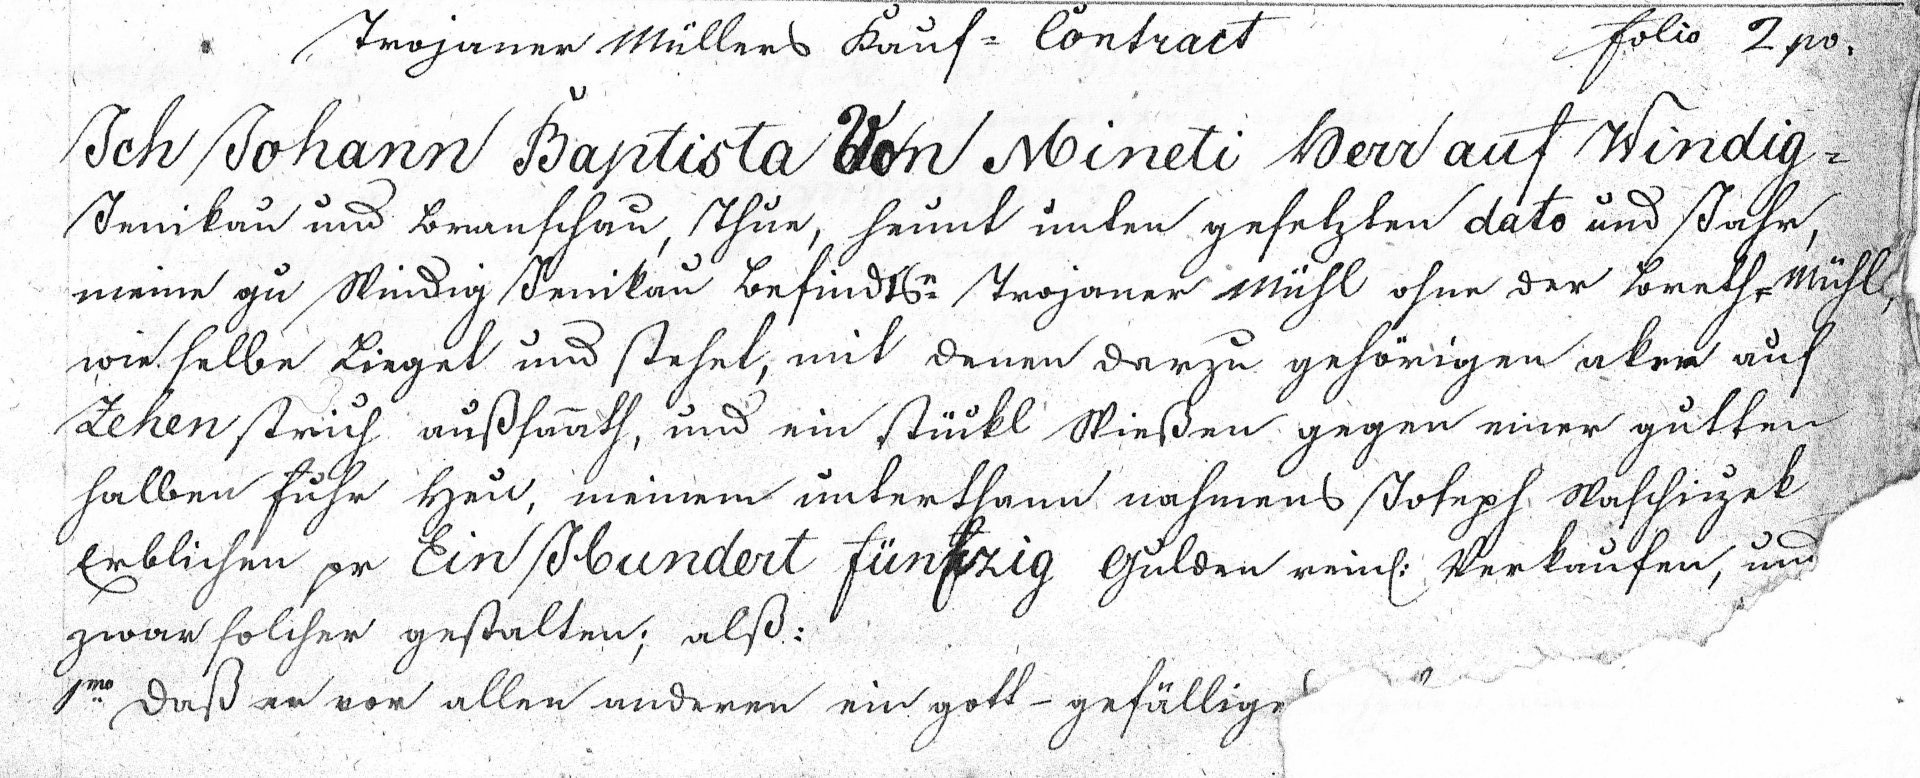 Trojaner Müllers Kauf= Contract folio 2 po.
Ich Johann Baptista Von Mineti Herr auf Windig=
Jenikau und Branschau, Thue, heunt unten gesetzten dato und Jahr,
meine zu Windig Jenikau befindl: Trojaner Mühl ohne der Breth=Mühl,
wie selbe Lieget und stehet, mit denen darzu gehörigen aker auf
Zehen strich außsaath, und ein stückl Wießen gegen einer gutten
halben fuhr Heu, meinem unterthann nahmens Joseph Waschiczek
Erblichen pr Ein Hundert fünfzig Gulden reinl: Verkaufen, und
zwar solcher gestalten; alß:
1mo Daß er vor allen anderen ein gott-gefällige